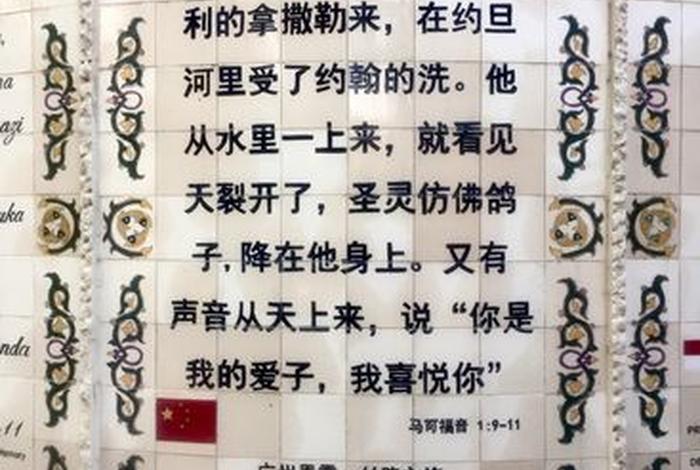 利的拿撒勒来，在约旦
河里受了约翰的洗。他
从水里一上来，就看见
天裂开了，圣灵仿佛鸽
子，降在他身上。又有
声音从天上来，说“你是
我的爱子，我喜悦你”
马可福音 1:9-11
azi
uka
nda
11